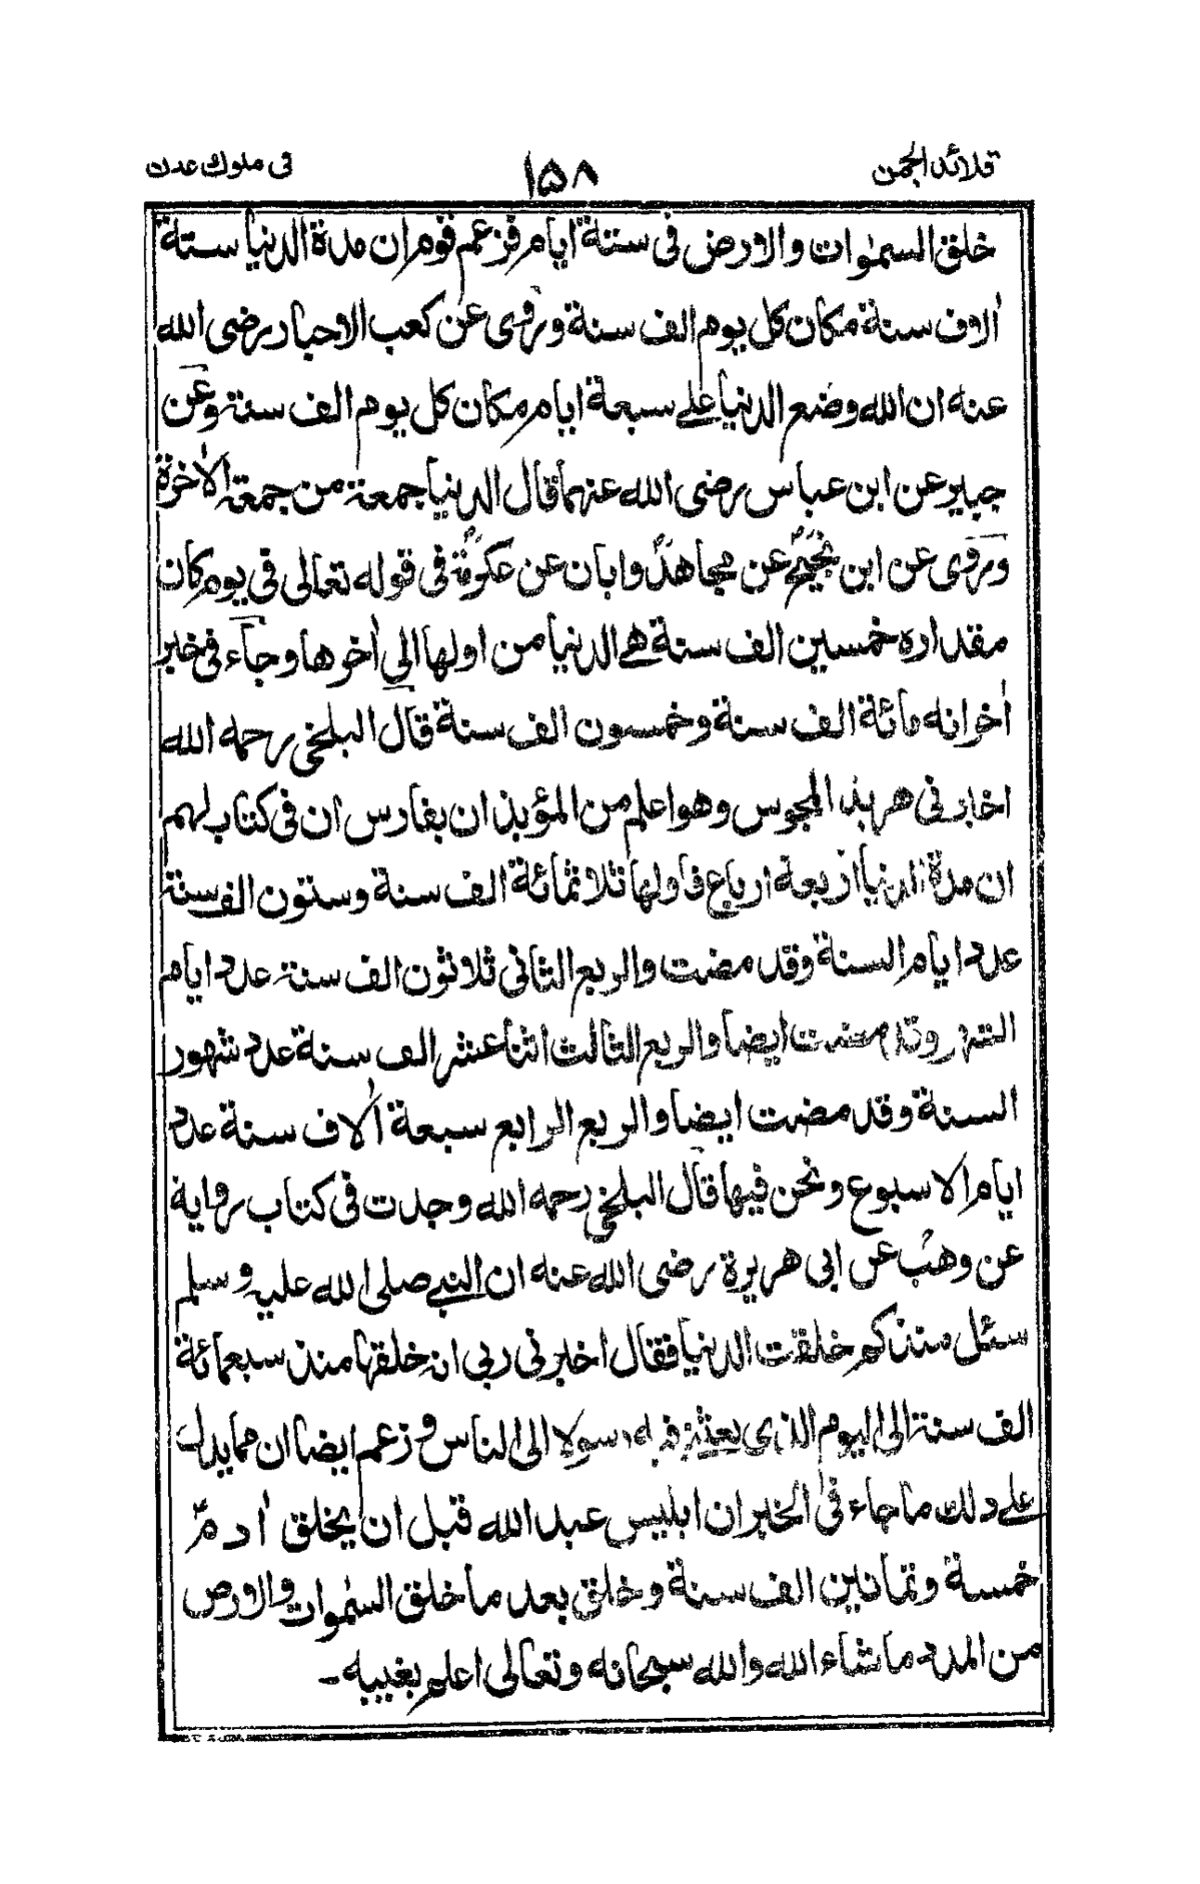 قلائد الجمن ١٥٨ فى ملوك عدن
خلق السمٰوات والارض فى ستة ايام فزعم قوم ان مدة الدنيا ستة
اٰلاف سنة مكان كل يوم الف سنة وروى عن كعب الاحبار رضى الله
عنه ان الله وضع الدنيا علے سبعة ايام مكان كل يوم الف سنة وعن
جبير عن ابن عباس رضى الله عنهما قال الدنيا جمعة من جمعة الاٰخرة
وروى عن ابن نجيح عن مجاهد وابان عن عكرمة فى قوله تعالى فى يوم كان
مقداره خمسين الف سنة هے الدنيا من اولها الى اٰخرها وجاء فى خبر
اٰخر انه مائة الف سنة وخمسون الف سنة قال البلخى رحمه الله
اخبرنى هربذ المجوس وهو اعلم من المؤبذان بفارس ان فى كتاب لهم
ان مدة الدنيا اربعة ارباع فاولها ثلاثمائة الف سنة وستون الف سنة
عدد ايام السنة وقد مضت والربع الثانى ثلاثون الف سنة عدد ايام
الشهر وقد مضت ايضا والربع الثالث اثنا عشر الف سنة عدد شهور
السنة وقد مضت ايضا والربع الرابع سبعة اٰلاف سنة عدد
ايام الاسبوع ونحن فيها قال البلخى رحمه الله وجدت فى كتاب رواية
عن وهب عن ابى هريرة رضى الله عنه ان النبے صلى الله عليه وسلم
سئل منذ كم خلقت الدنيا فقال اخبرنى ربى انه خلقها منذ سبعمائة
الف سنة الى اليوم الذى بعثنے فيه رسولا الى الناس وزعم ايضا ان مما يدل
علے ذلك ما جاء فى الخبر ان ابليس عبد الله قبل ان يخلق اٰدم
خمسة وثمانين الف سنة وخلق بعد ما خلق السمٰوات والارض
من المدد ما شاء الله والله سبحانه وتعالى اعلم بغيبه -